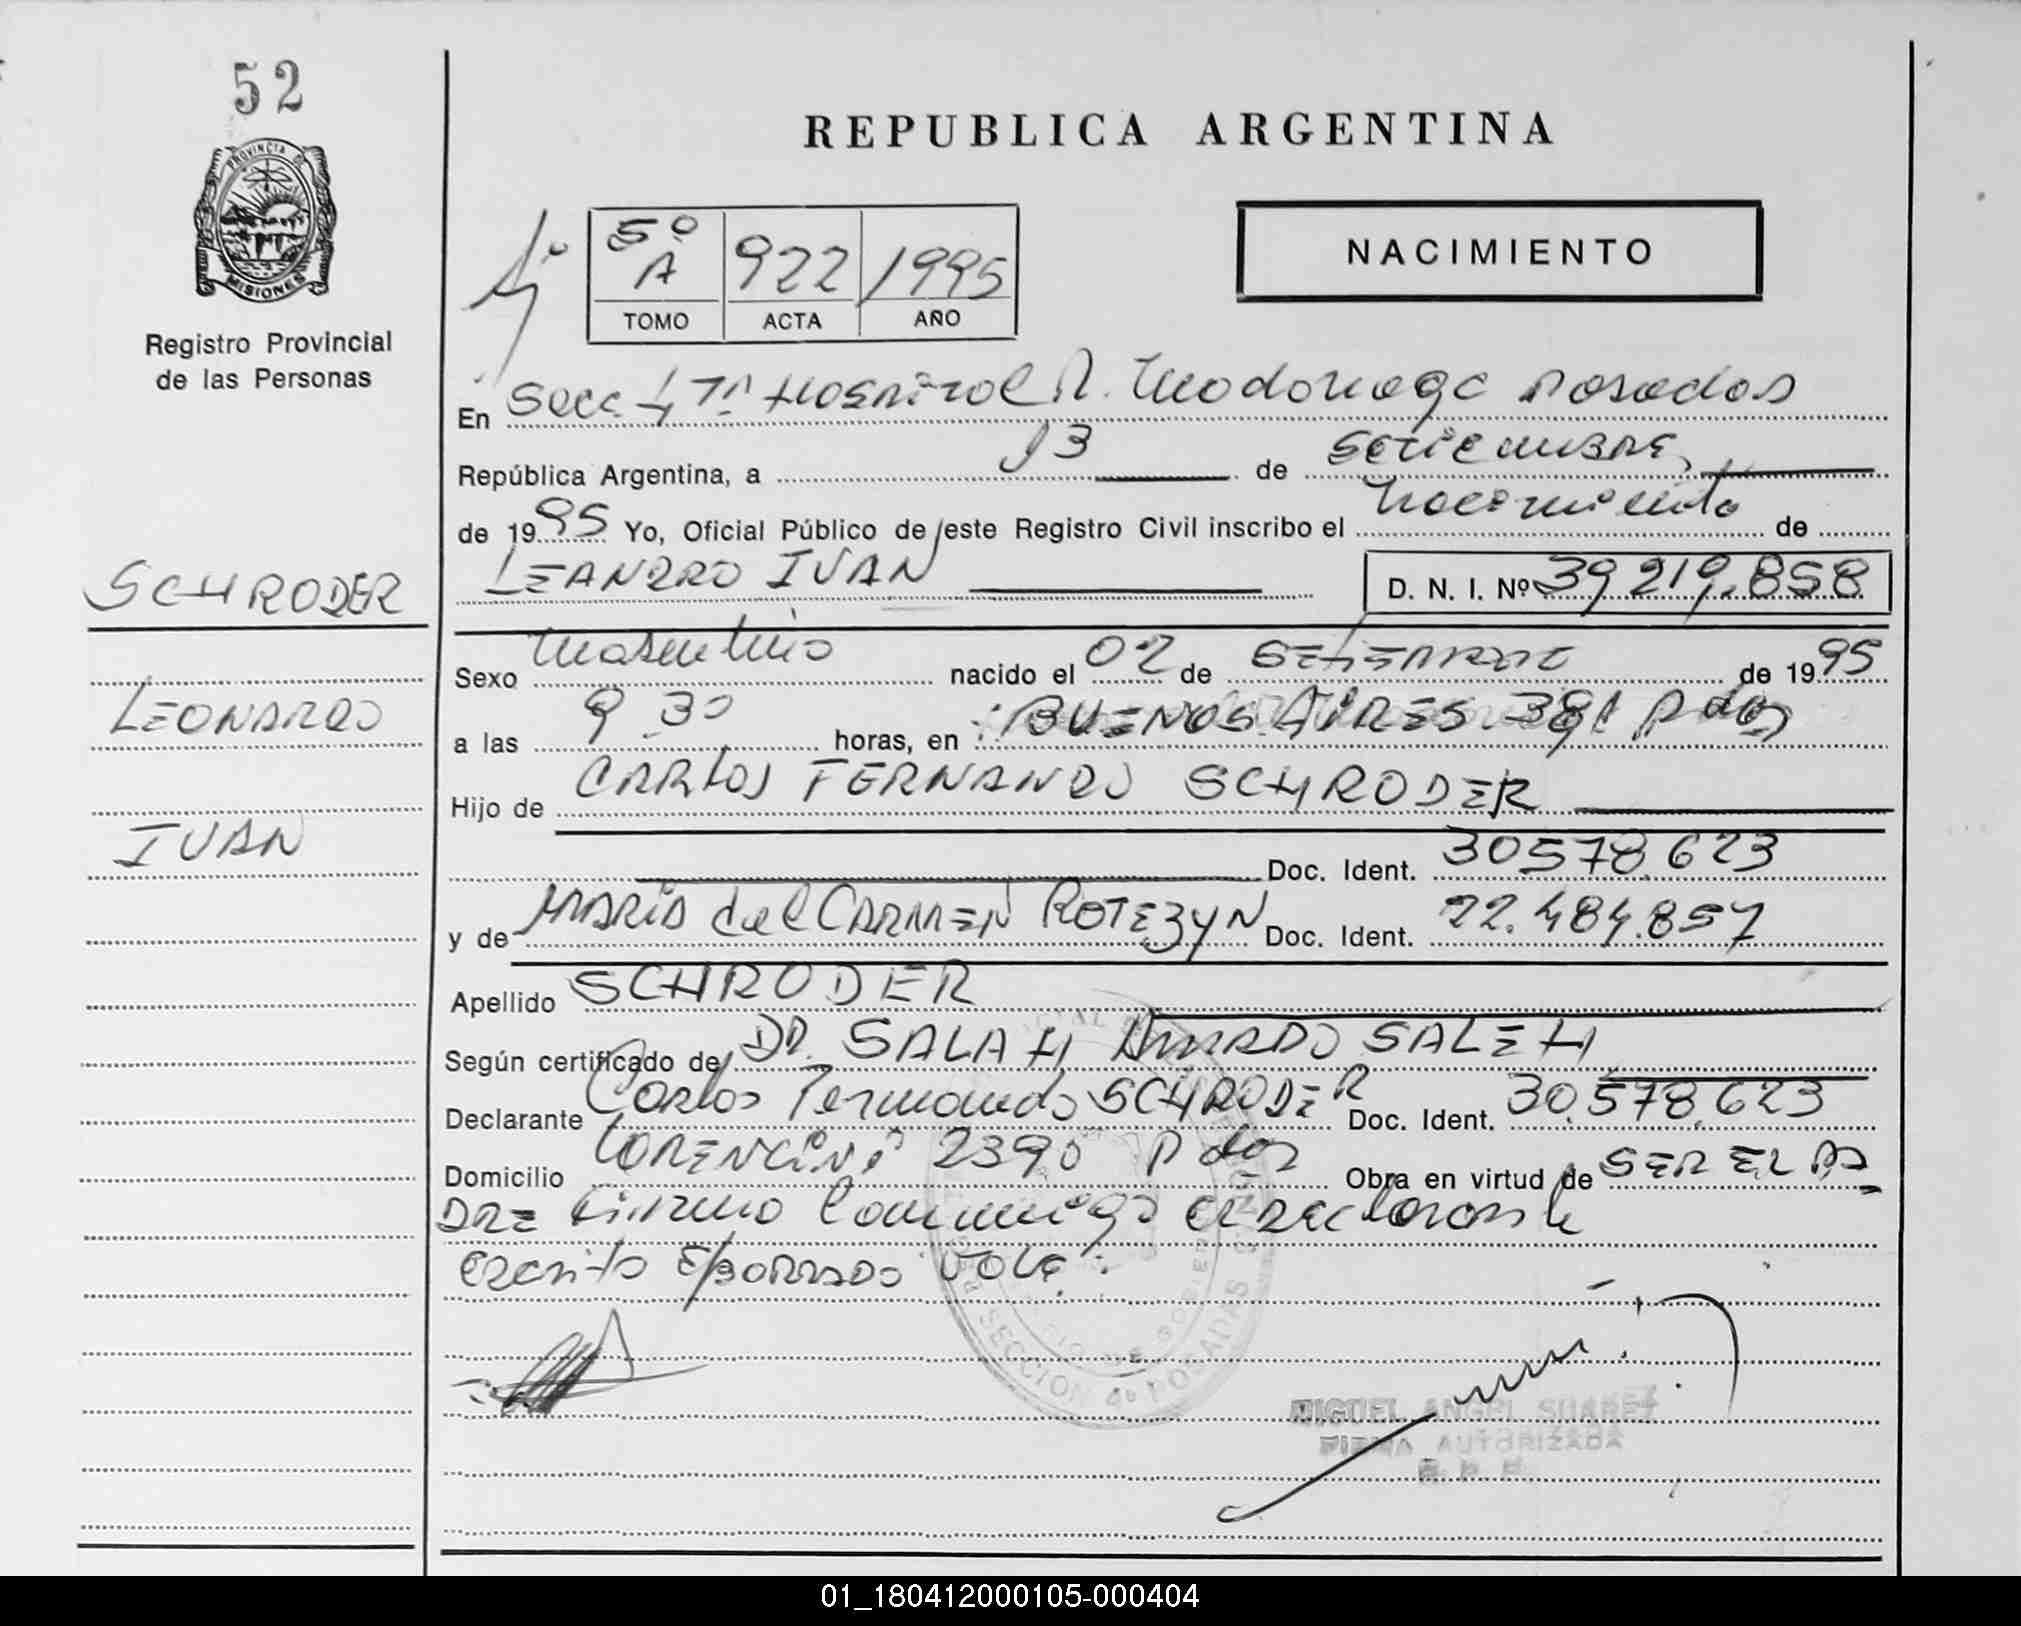 52
PROVINCIA DE
MISIONES
Registro Provincial
de las Personas
SCHRODER
LEONARDO
IVAN
REPUBLICA ARGENTINA
5º A 922 1995
TOMO ACTA AÑO
NACIMIENTO
En Secc 4ta Hospital R. Madariaga Posadas
República Argentina, a 13 de Setiembre,
de 1995 Yo, Oficial Público de este Registro Civil inscribo el Nacimiento de
LEANDRO IVAN D. N. I. Nº 39219.858
Sexo Masculino nacido el 02 de SETIEMBRE de 1995
a las 9 30 horas, en BUENOS AIRES 381 Pdas
Hijo de CARLOS FERNANDO SCHRODER
Doc. Ident. 30578.623
y de MARIA del CARMEN ROTEZYN Doc. Ident. 22.484.857
Apellido SCHRODER
Según certificado de DR. SALAH SALEH
Declarante Carlos Fernando SCHRODER Doc. Ident. 30.578.623
Domicilio 2390 Pdas Obra en virtud de SER EL PA
DRE Firmo Conmigo el declarante
Escrito S/BORRADO VALE.
SECCION 4º POSADAS
MIGUEL ANGEL SUAREZ
FIRMA AUTORIZADA
01_180412000105-000404